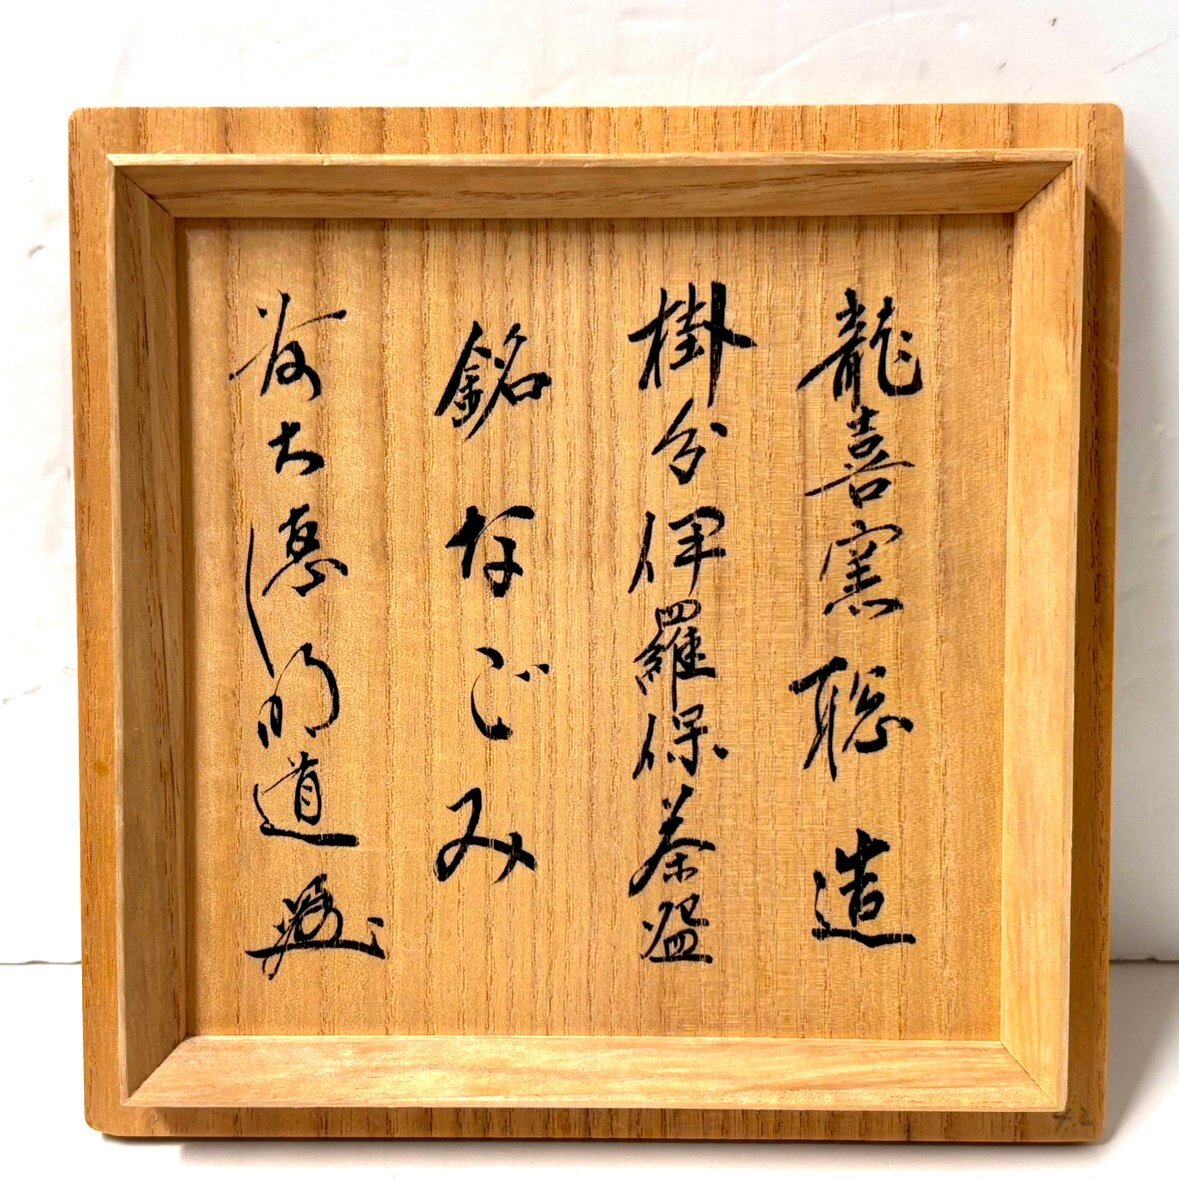 龍喜窯聡造
掛分伊羅保茶盌
銘なごみ
前大徳明道